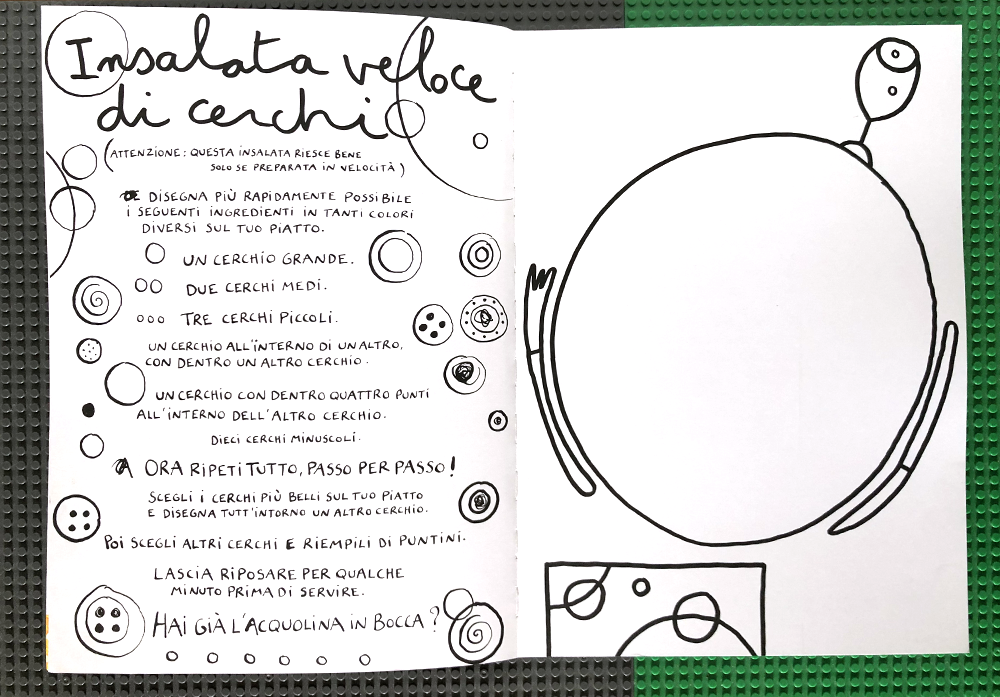 Insalata veloce
di cerchi
(ATTENZIONE: QUESTA INSALATA RIESCE BENE
SOLO SE PREPARATA IN VELOCITÀ)
DISEGNA PIÙ RAPIDAMENTE POSSIBILE
I SEGUENTI INGREDIENTI IN TANTI COLORI
DIVERSI SUL TUO PIATTO.
UN CERCHIO GRANDE.
DUE CERCHI MEDI.
TRE CERCHI PICCOLI.
UN CERCHIO ALL'INTERNO DI UN ALTRO,
CON DENTRO UN ALTRO CERCHIO.
UN CERCHIO CON DENTRO QUATTRO PUNTI
ALL'INTERNO DELL'ALTRO CERCHIO.
DIECI CERCHI MINUSCOLI.
ORA RIPETI TUTTO, PASSO PER PASSO!
SCEGLI I CERCHI PIÙ BELLI SUL TUO PIATTO
E DISEGNA TUTT'INTORNO UN ALTRO CERCHIO.
POI SCEGLI ALTRI CERCHI E RIEMPILI DI PUNTINI.
LASCIA RIPOSARE PER QUALCHE
MINUTO PRIMA DI SERVIRE.
HAI GIÀ L'ACQUOLINA IN BOCCA?